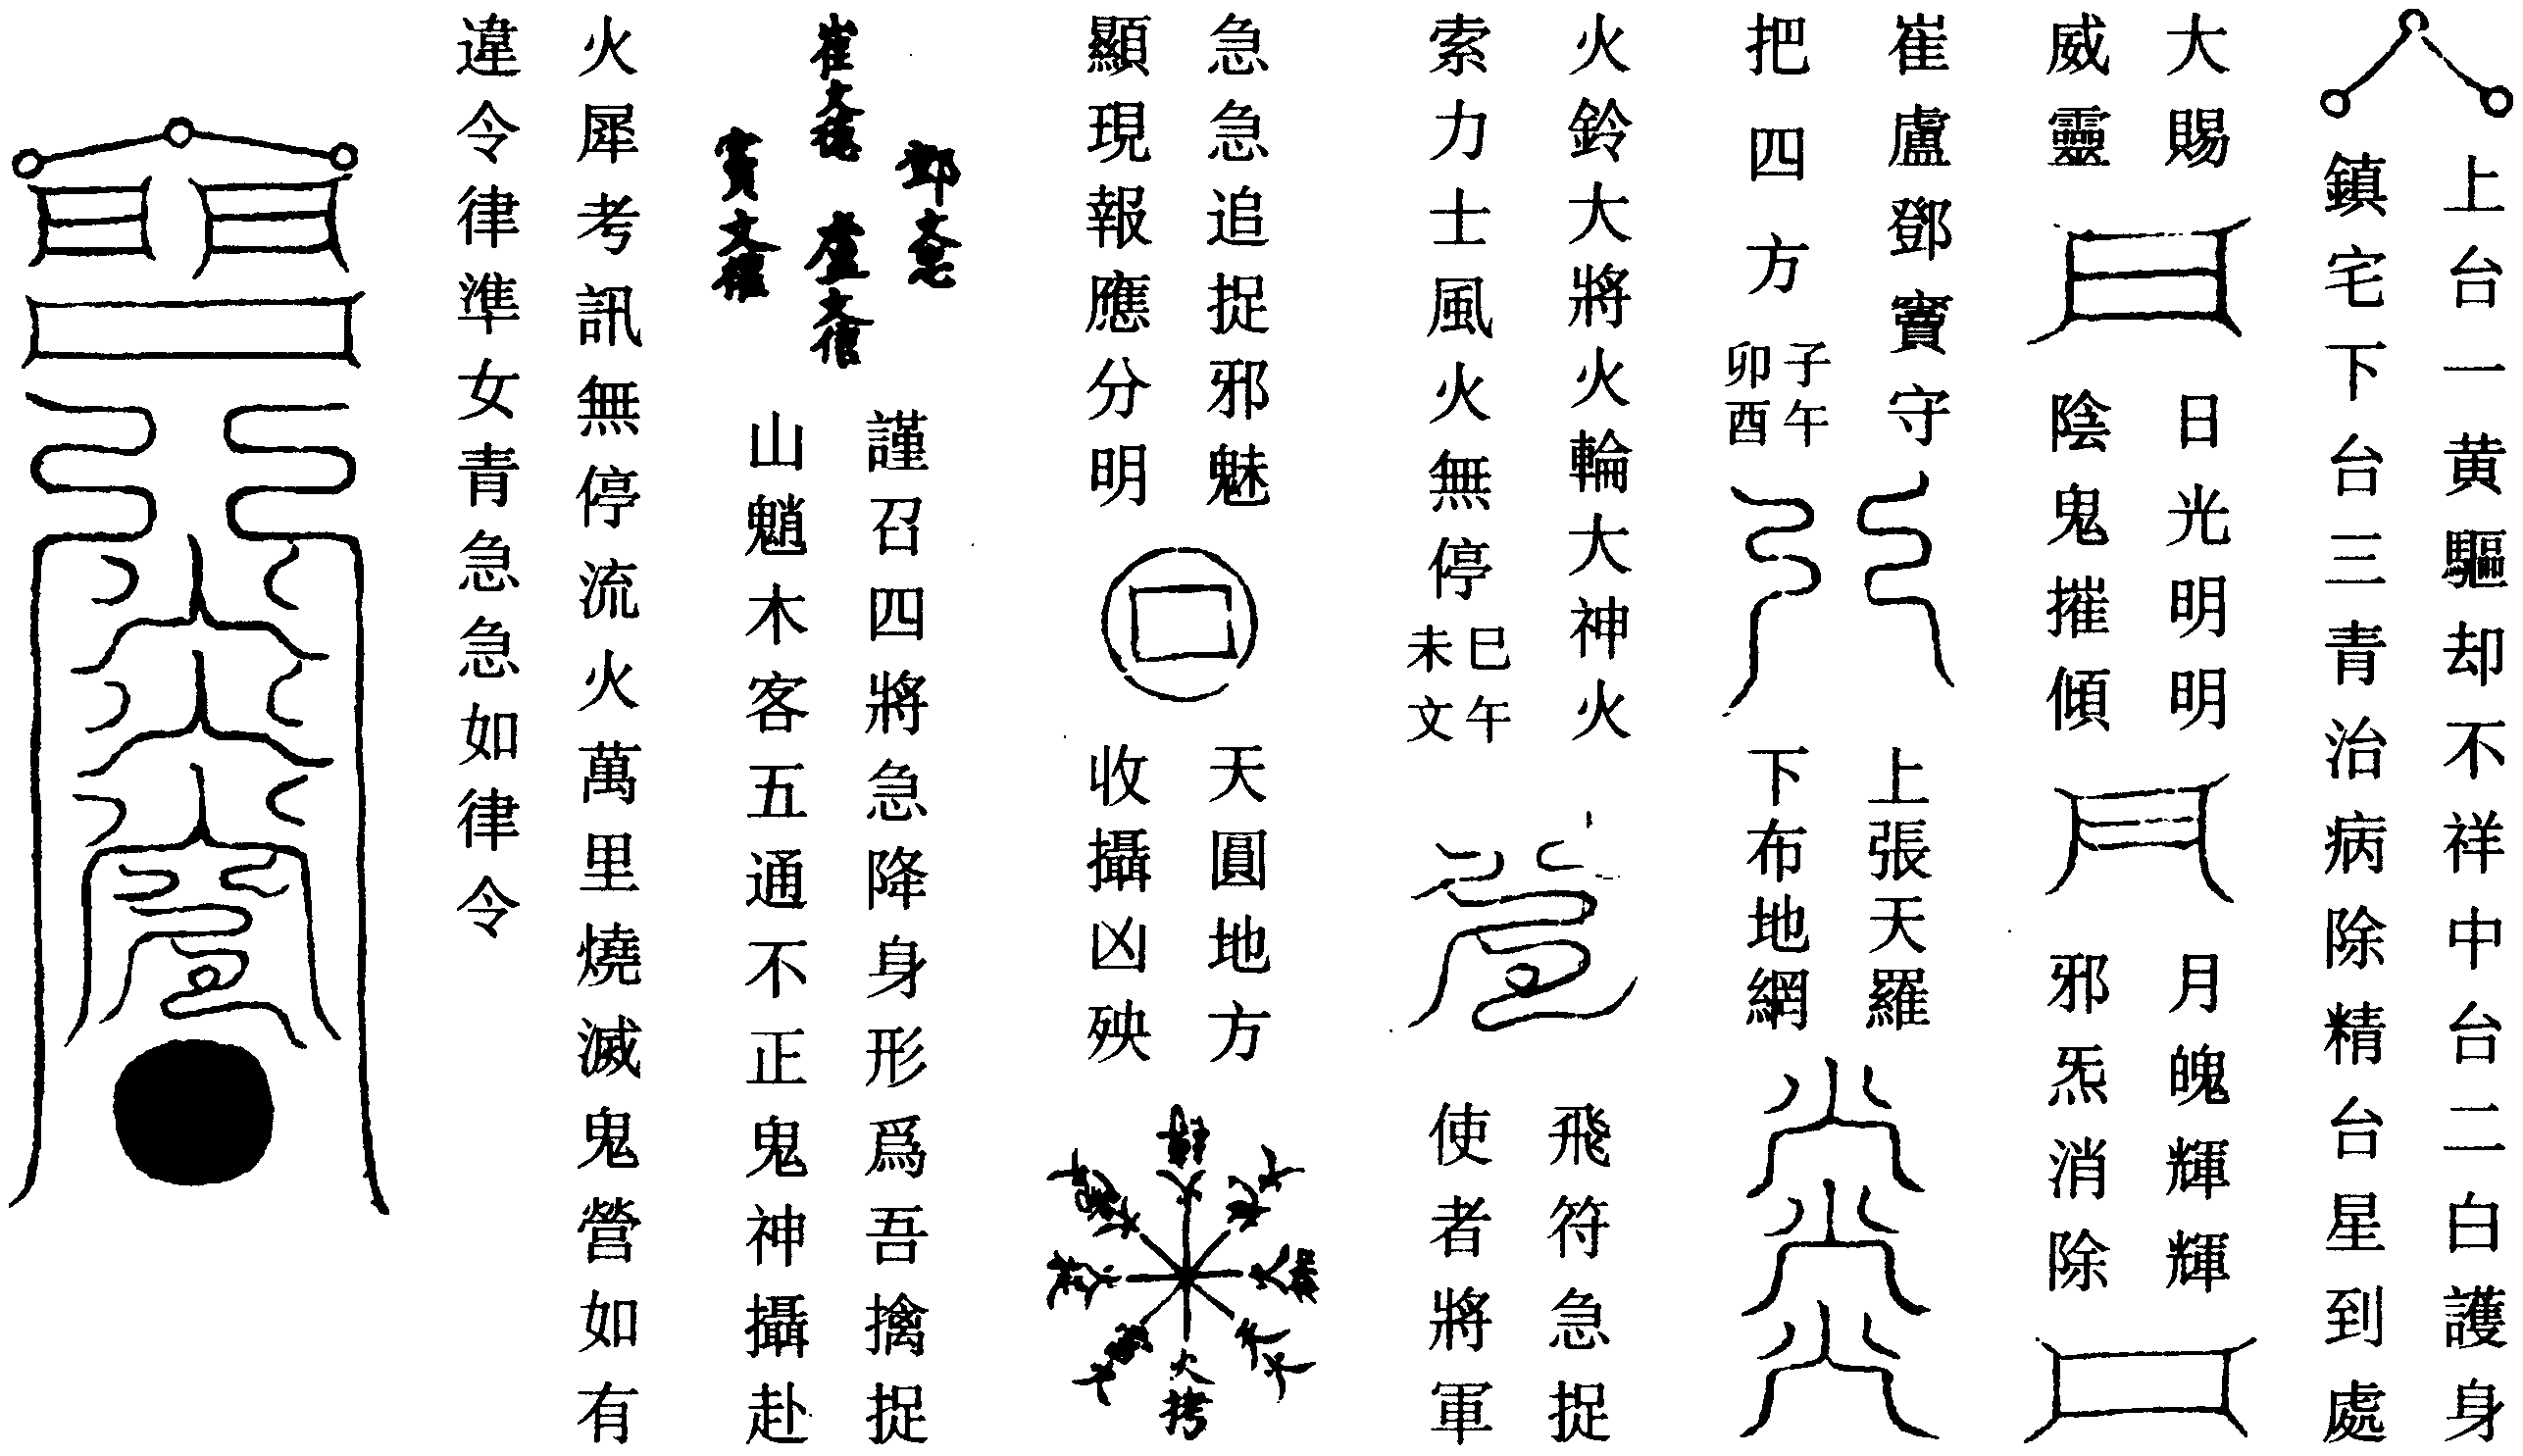 上台一黄驅却不祥中台二白護身
鎮宅下台三青治病除精台星到處
大賜
威靈
日光明明
陰鬼摧傾
月魄輝輝
邪炁消除
崔盧鄧竇守
把四方
子午
卯酉
上張天羅
下布地網
火鈴大將火輪大神火
索力士風火無停
巳午
未文
飛符急捉
使者將軍
急急追捉邪魅
顯現報應分明
天圓地方
收攝凶殃
火
拷
鄧文
崔文
盧文
竇文
謹召四將急降身形爲吾擒捉
山魈木客五通不正鬼神攝赴
火犀考訊無停流火萬里燒滅鬼營如有
違令律準女青急急如律令